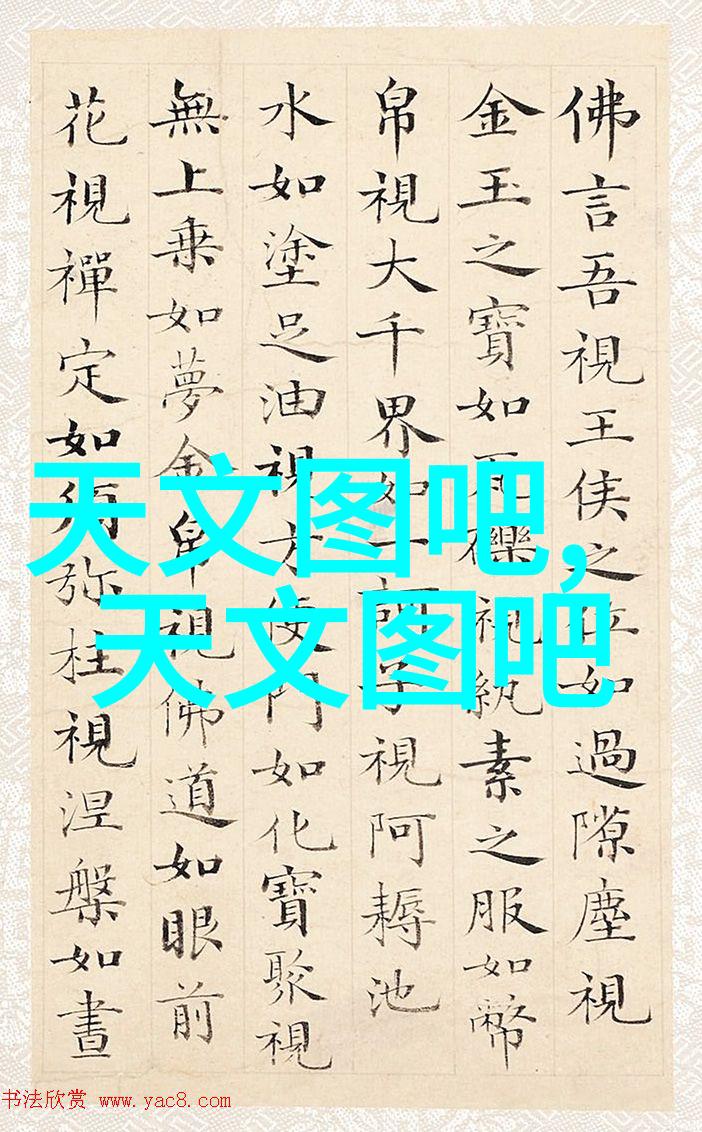 佛言吾視王侯之位如過隙塵視
金玉之寶如瓦礫視紈素之服如幣
帛視大千界如一訶子視阿耨池
水如塗足油視方便門如化寶聚視
無上乗如夢金帛視佛道如眼前
花視禪定如須弥柱視涅槃如晝
天文图吧,
天文图吧
书法欣赏 www.yac8.com